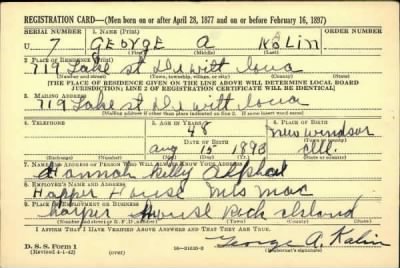 REGISTRATION CARD—(Men born on or after April 28, 1877 and on or before February 16, 1897)
SERIAL NUMBER 1. NAME (Print) ORDER NUMBER
U 7 GEORGE A KALIN
(First) (Middle) (Last)
2. PLACE OF RESIDENCE (Print)
719 Lake st De Witt Iowa
(Number and street) (Town, township, village, or city) (County) (State)
[THE PLACE OF RESIDENCE GIVEN ON THE LINE ABOVE WILL DETERMINE LOCAL BOARD
JURISDICTION; LINE 2 OF REGISTRATION CERTIFICATE WILL BE IDENTICAL]
3. MAILING ADDRESS
719 Lake st De Witt Iowa
[Mailing address if other than place indicated on line 2. If same insert word same]
4. TELEPHONE 5. AGE IN YEARS 6. PLACE OF BIRTH
48 New Windsor
DATE OF BIRTH
Aug 15 1893 Ill.
(Exchange) (Number) (Mo.) (Day) (Yr.) (State or country)
7. NAME AND ADDRESS OF PERSON WHO WILL ALWAYS KNOW YOUR ADDRESS
Hannah Kelly
8. EMPLOYER'S NAME AND ADDRESS
Harper House Mrs Mac
9. PLACE OF EMPLOYMENT OR BUSINESS
Harper House Rock Island
(Number and street or R. F. D. number) (Town) (County) (State)
I AFFIRM THAT I HAVE VERIFIED ABOVE ANSWERS AND THAT THEY ARE TRUE.
D. S. S. Form 1
(Revised 4-1-42) (over) George A. Kalin
(Registrant's signature)